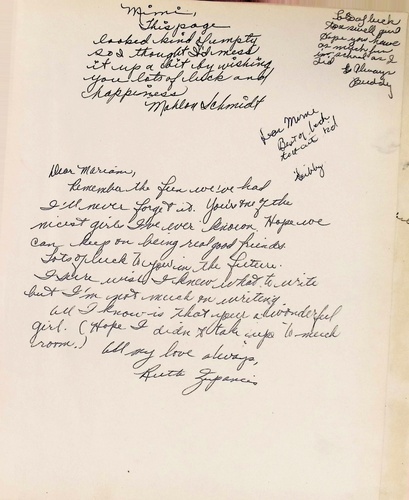 Mimi,
This page
looked kind of umpty
so I thought I'd mess
it up a bit by wishing
you lots of luck and
happiness
Mahlon Schmidt
Lots of luck
to a swell girl
Hope you have
as much fun
in school as I
did
Always
Buddy
Dear Mimi
Best of luck
to a cute kid
Libby
Dear Mariam,
Remember the fun we've had
I'll never forget it. You're one of the
nicest girls I've ever known. Hope we
can keep on being real good friends.
Lots of luck to you in the future.
I sure wish I knew what to write
but I'm not much on writing.
All I know is that your a wonderful
girl. (Hope I didn't take up to much
room.) All my love always,
Ruth Zupancis